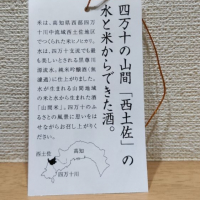 四万十の山間「西土佐」の
水と米からできた酒。
米は、高知県西部四万
十川中流域西土佐地区
でつくられた米ヒノヒカリ。
水は、四万十支流でも最
も美しいとされる黒尊川
源流水。純米吟醸酒(無
濾過)に仕上がりました。
水が生まれる山間地域
の米と水から生まれた酒
「山間米」。四万十のふ
るさとの風景に思いをは
せながらお召し上がりく
ださい。
高知
西土佐
四万十川